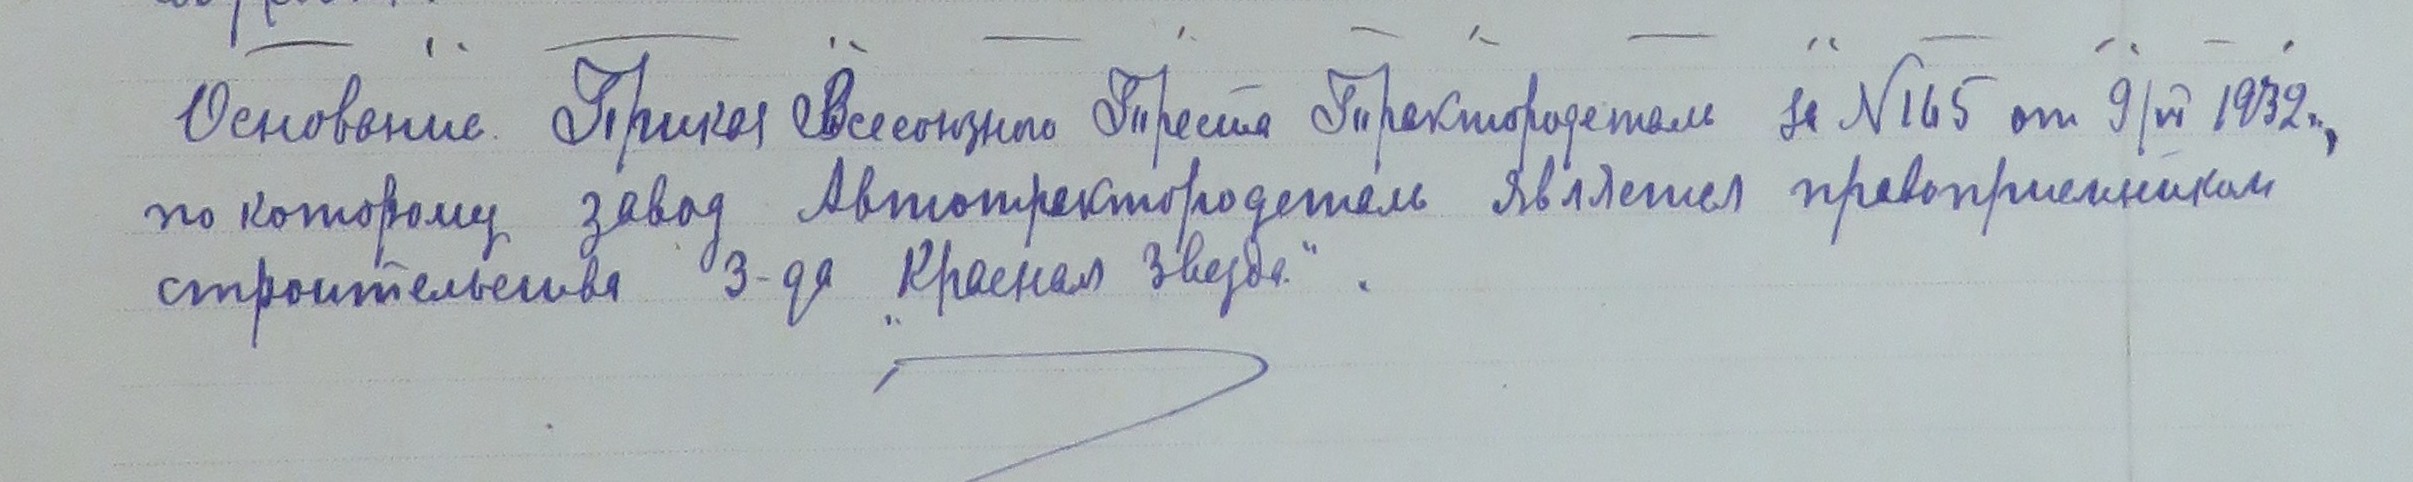 Основание. Приказ Всесоюзного Треста Трактородеталь за N 165 от 9/VI 1932г.,
по которому завод Автотрактородеталь является правоприемником
строительства З-да „Красная Звезда".